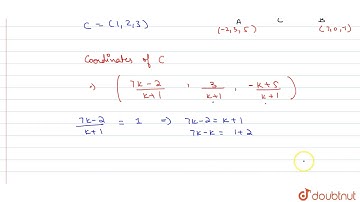 C = (1, 2, 3)
A C B
(-2, 3, 5) (7, 0, 7)
Coordinates of C
⇒ ( 7k-2/k+1 , 3/k+1 , -k+5/k+1 )
7k-2/k+1 = 1 ⇒ 7k-2 = k+1
7k-k = 1+2
doubtnut